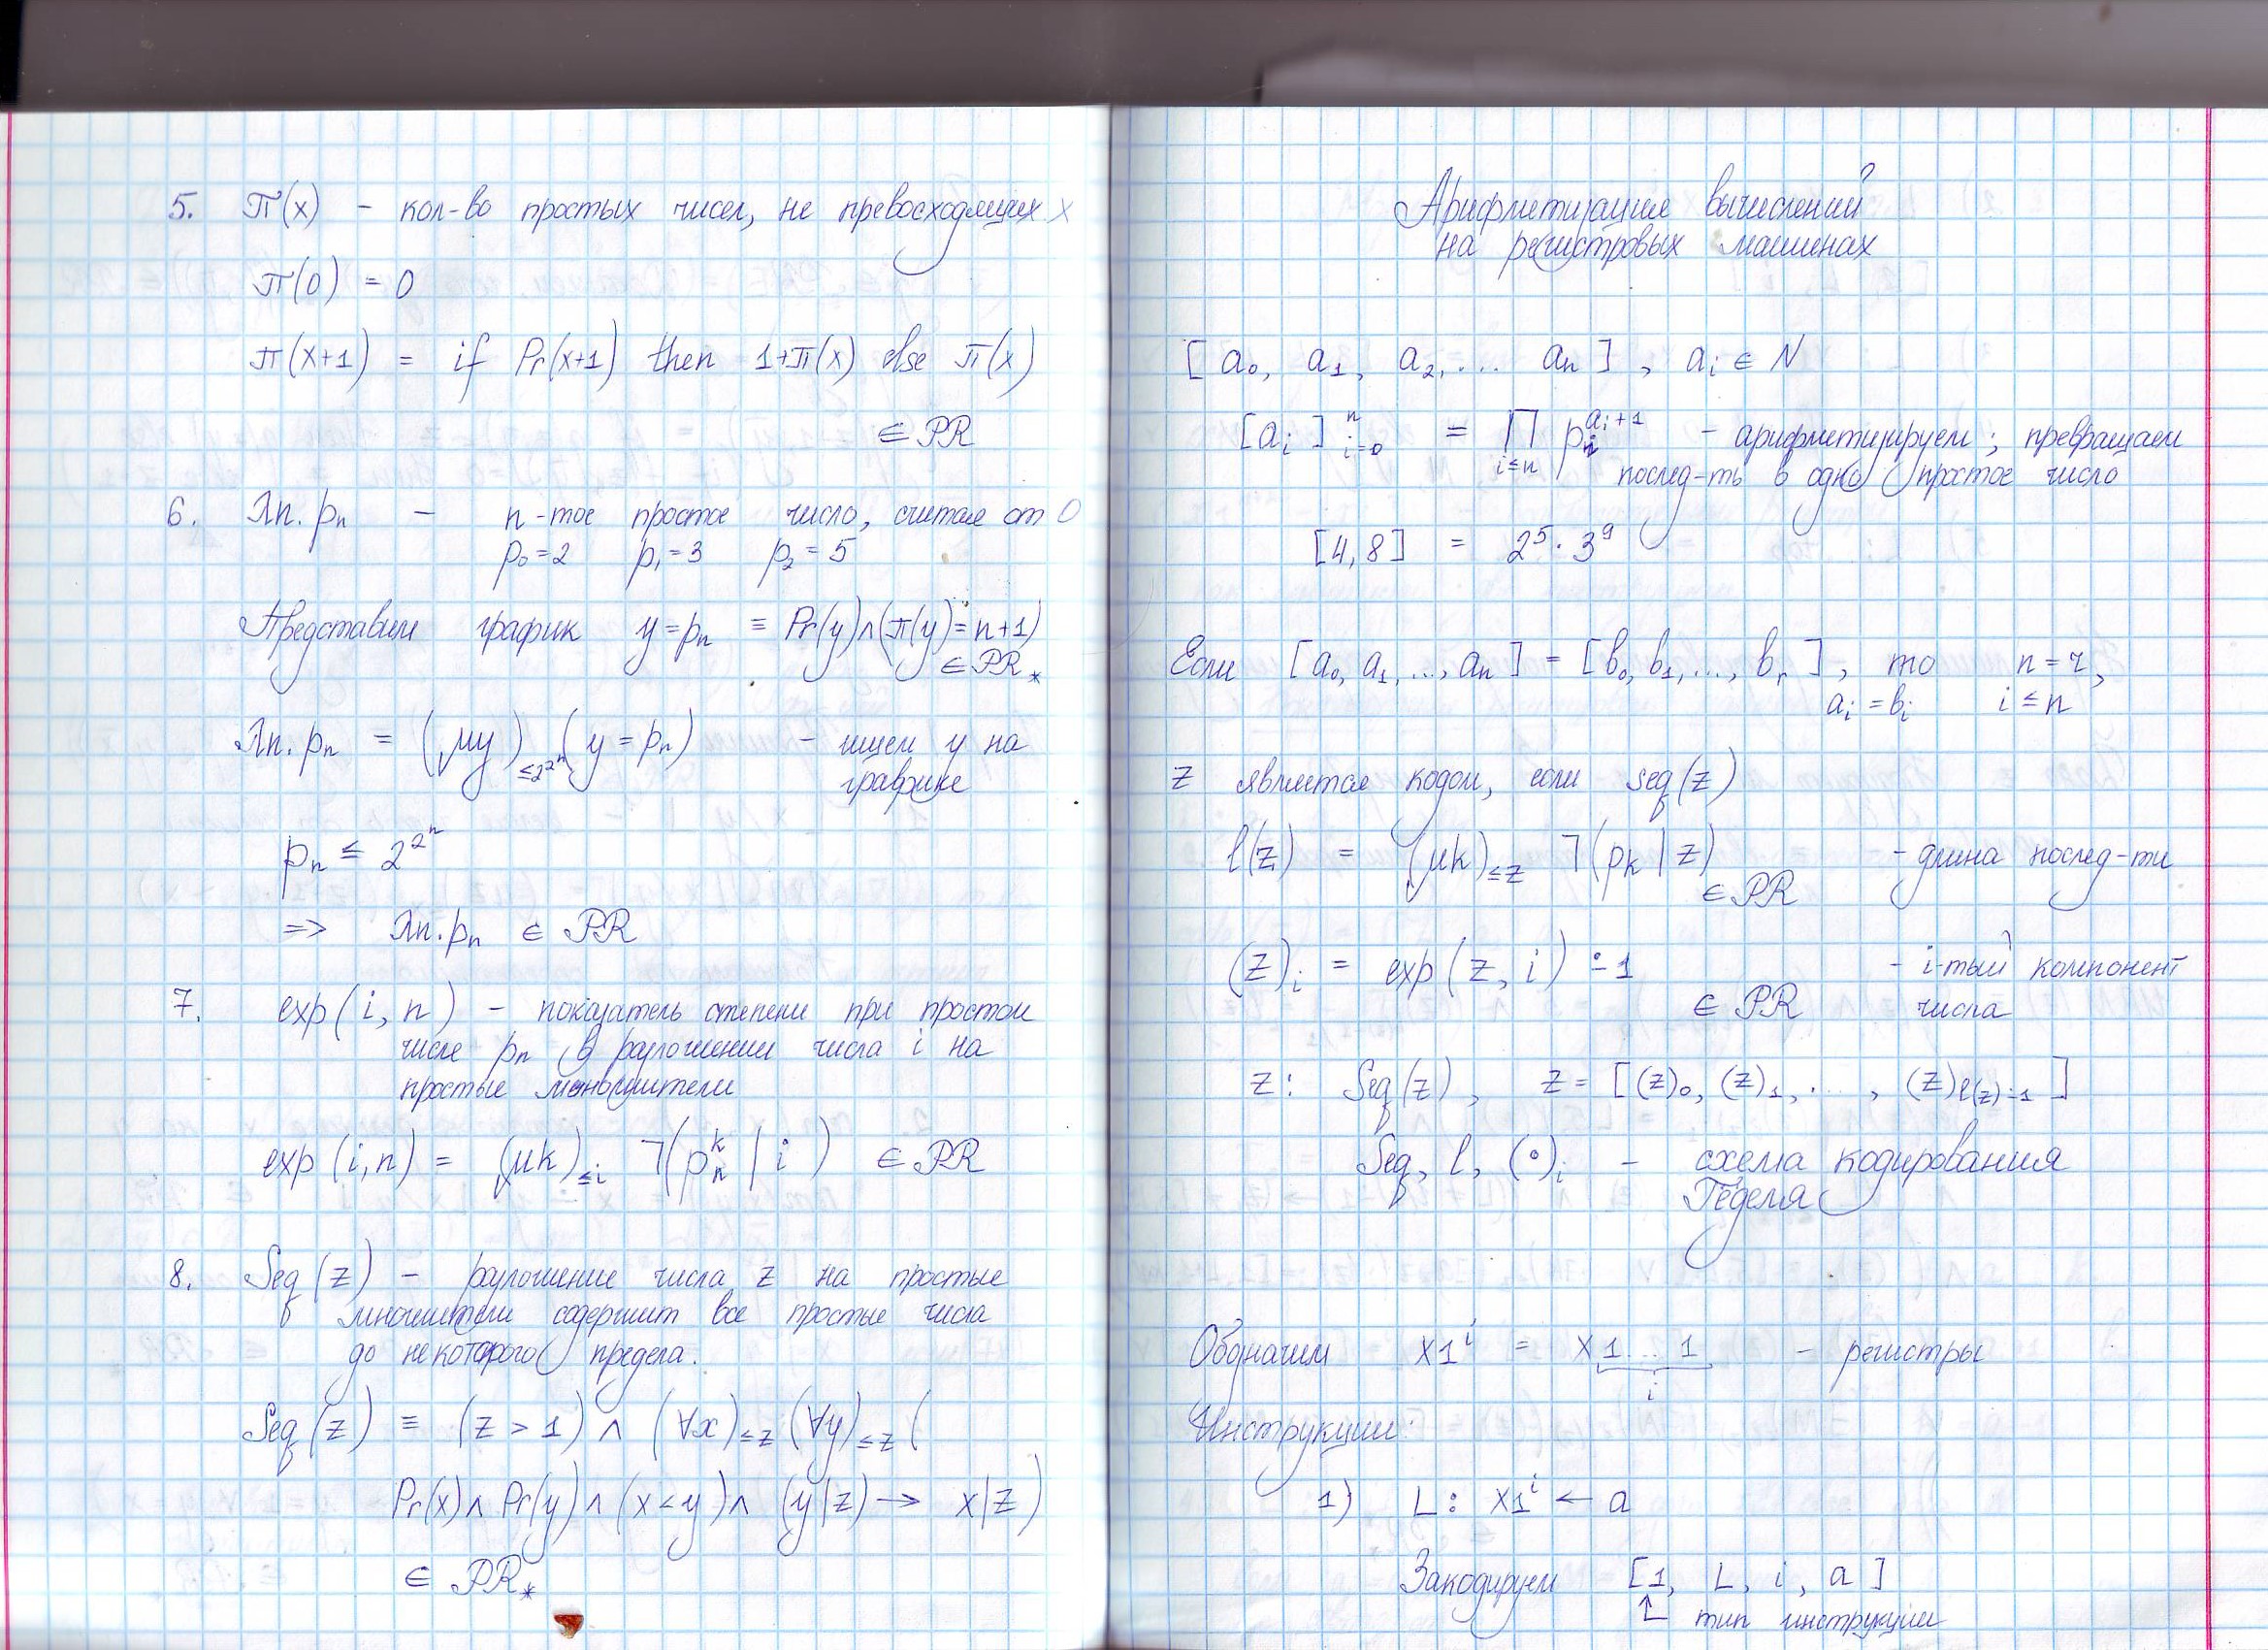 5. π(x) - кол-во простых чисел, не превосходящих x
π(0) = 0
π(x+1) = if Pr(x+1) then 1+π(x) else π(x)
∈ PR
6. λn. pₙ - n-тое простое число, считая от 0
p₀=2 p₁=3 p₂=5
Представим график y=pₙ ≡ Pr(y)∧(π(y)=n+1)
∈ PR*
λn. pₙ = (μy)≤2^2^n (y = pₙ) - ищем y на
графике
pₙ ≤ 2^2^n
=> λn. pₙ ∈ PR
7. exp(i, n) - показатель степени при простом
числе pₙ в разложении числа i на
простые множители
exp(i,n) = (μk)≤i ¬(pₙ^k | i) ∈ PR
8. Seq(z) - разложение числа z на простые
множители содержит все простые числа
до некоторого предела.
Seq(z) ≡ (z > 1) ∧ (∀x)≤z (∀y)≤z (
Pr(x)∧ Pr(y)∧ (x<y)∧ (y|z) → x|z)
∈ PR*
Арифметизация вычислений
на регистровых машинах
[a₀, a₁, a₂, ... aₙ], aᵢ ∈ N
[aᵢ]ⁿᵢ₌₀ = ∏i≤n pᵢ^(aᵢ+1) - арифметизируем; превращаем
послед-ть в одно простое число
[4,8] = 2⁵·3⁹
Если [a₀, a₁, ..., aₙ] = [b₀, b₁, ..., bᵣ], то n=r,
aᵢ = bᵢ i ≤ n
z является кодом, если seq(z)
l(z) = (μk)≤z ¬(pₖ | z) - длина послед-ти
∈ PR
(z)ᵢ = exp(z, i) ∸ 1 - i-тый компонент
∈ PR числа
z: Seq(z), z = [(z)₀, (z)₁, ..., (z)l(z)∸1]
Seq, l, (∘)ᵢ - схема кодирования
Гёделя
Обозначим x1ⁱ = x1...1 - регистры
i
Инструкции:
1) L: x1ⁱ ← a
Закодируем [1, L, i, a]
тип инструкции